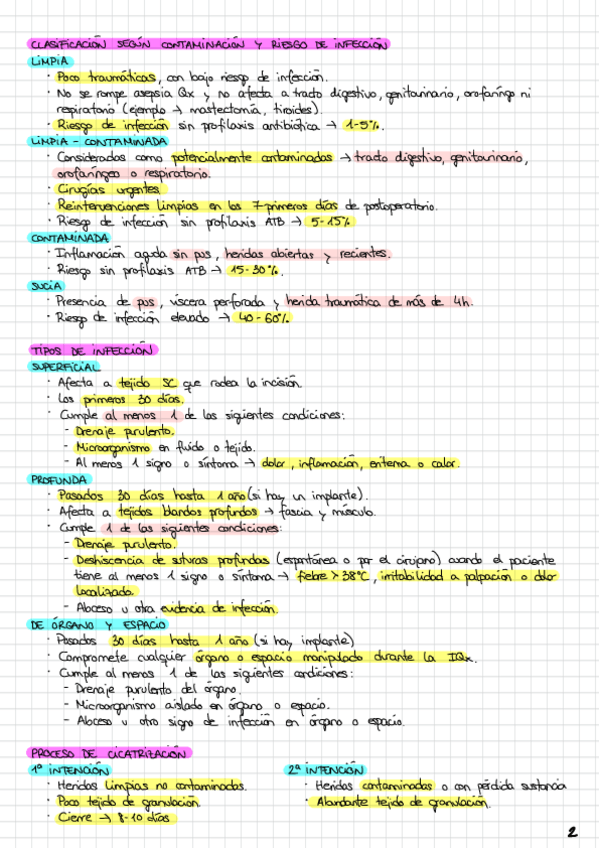 CLASIFICACIÓN SEGÚN CONTAMINACIÓN Y RIESGO DE INFECCIÓN
LIMPIA
· Poco traumáticas, con bajo riesgo de infección.
· No se rompe asepsia Qx y no afecta a tracto digestivo, genitourinario, orofaríngo ni
respiratorio (ejemplo → mastectomía, tiroides).
· Riesgo de infección sin profilaxis antibiótica → 1-5%.
LIMPIA - CONTAMINADA
· Consideradas como potencialmente contaminadas → tracto digestivo, genitourinario,
orofaríngeo o respiratorio.
· Cirugías urgentes.
· Reintervenciones limpias en los 7 primeros días de postoperatorio.
· Riesgo de infección sin profilaxis ATB → 5-15%
CONTAMINADA
· Inflamación aguda sin pus, heridas abiertas y recientes.
· Riesgo sin profilaxis ATB → 15-30%.
SUCIA
· Presencia de pus, víscera perforada y herida traumática de más de 4h.
· Riesgo de infección elevado → 40-60%
TIPOS DE INFECCIÓN
SUPERFICIAL
· Afecta a tejido SC que rodea la incisión.
· Los primeros 30 días.
· Cumple al menos 1 de las siguientes condiciones:
- Drenaje purulento.
- Microorganismo en fluido o tejido.
- Al menos 1 signo o síntoma → dolor, inflamación, eritema o calor.
PROFUNDA
· Pasados 30 días hasta 1 año (si hay un implante).
· Afecta a tejidos blandos profundos → fascia y músculo.
· Cumple 1 de las siguientes condiciones:
- Drenaje purulento.
- Deshiscencia de suturas profundas (espontánea o por el cirujano) cuando el paciente
tiene al menos 1 signo o síntoma → fiebre > 38ºC, irritabilidad a palpación o dolor
localizado.
- Absceso u otra evidencia de infección.
DE ÓRGANO Y ESPACIO
· Pasados 30 días hasta 1 año (si hay implante)
· Compromete cualquier órgano o espacio manipulado durante la IQx.
· Cumple al menos 1 de las siguientes condiciones:
- Drenaje purulento del órgano.
- Microorganismo aislado en órgano o espacio.
- Absceso u otro signo de infección en órgano o espacio.
PROCESO DE CICATRIZACIÓN
1ª INTENCIÓN
· Heridas limpias no contaminadas.
· Poco tejido de granulación.
· Cierre → 8-10 días
2ª INTENCIÓN
· Heridas contaminadas o con pérdida sustancia
· Abundante tejido de granulación.
2